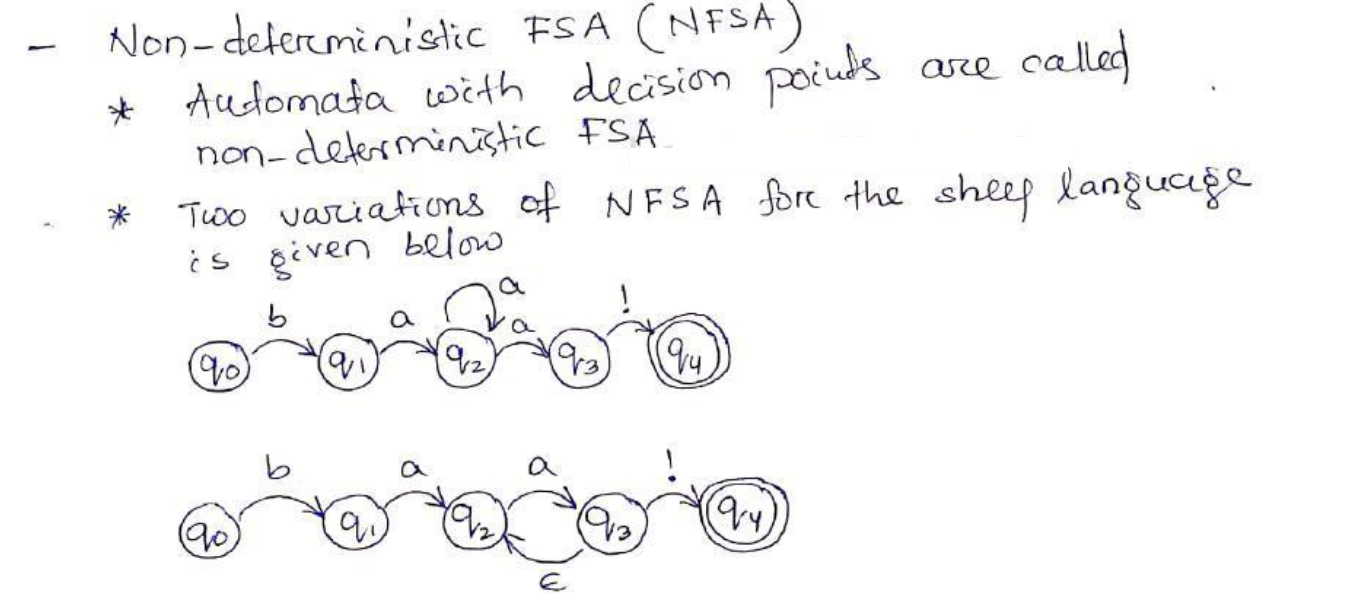 - Non-deterministic FSA (NFSA)
* Automata with decision points are called
non-deterministic FSA
* Two variations of NFSA for the sheep language
is given below
a
b a a !
q0 q1 q2 q3 q4
b a a !
q0 q1 q2 q3 q4
ϵ